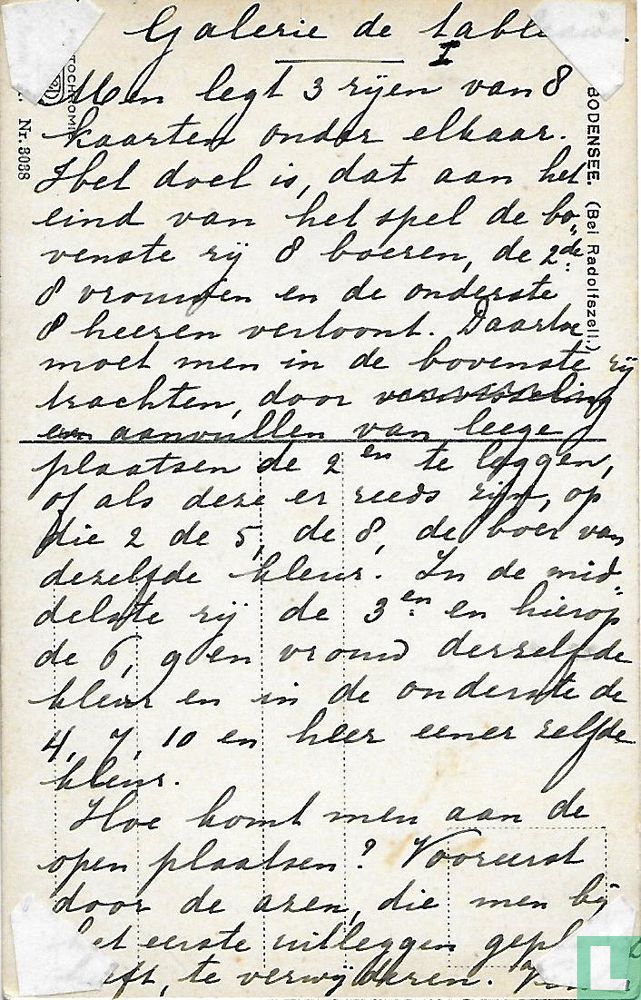 Galerie de
I
Men legt 3 rijen van 8
kaarten onder elkaar.
Het doel is, dat aan het
eind van het spel de bo-
venste rij 8 boeren, de 2de
8 vrouwen en de onderste
8 heeren vertoont. Daartoe
moet men in de bovenste rij
trachten, door verwisseling
en aanvullen van leege
plaatsen de 2en te leggen,
of als deze er reeds zijn, op
die 2 de 5, de 8, de boer van
dezelfde kleur. In de mid-
delste rij de 3en en hierop
de 6, 9 en vrouw derzelfde
kleur en in de onderste de
4, 7, 10 en heer eener zelfde
kleur.
Hoe komt men aan de
open plaatsen? Vooreerst
door de azen, die men bij
het eerste uitleggen
te verwijderen.
BODENSEE. (Bei Radolfszell.)
Nr. 3038
L